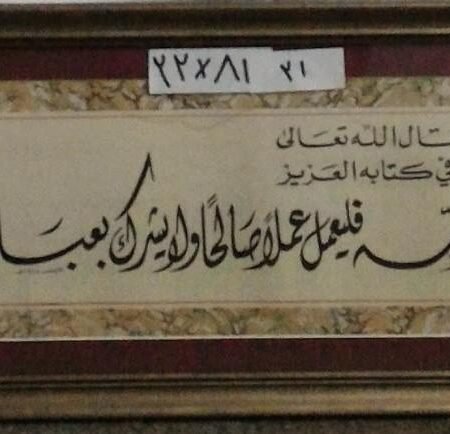 ٢٢×٨١ ٢١
قال الله تعالى
في كتابه العزيز
ـه فليعمل عملاً صالحًا ولا يشرك بعبا